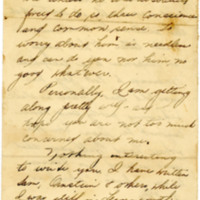 forced to do so
and common sense. To
worry about him is needless
and can do you nor him no
good whatever.
Personally, I am getting
along pretty well – and
hope you are not too much
concerned about me.
Nothing interesting
to write you. I have written
& others, while
I was still in